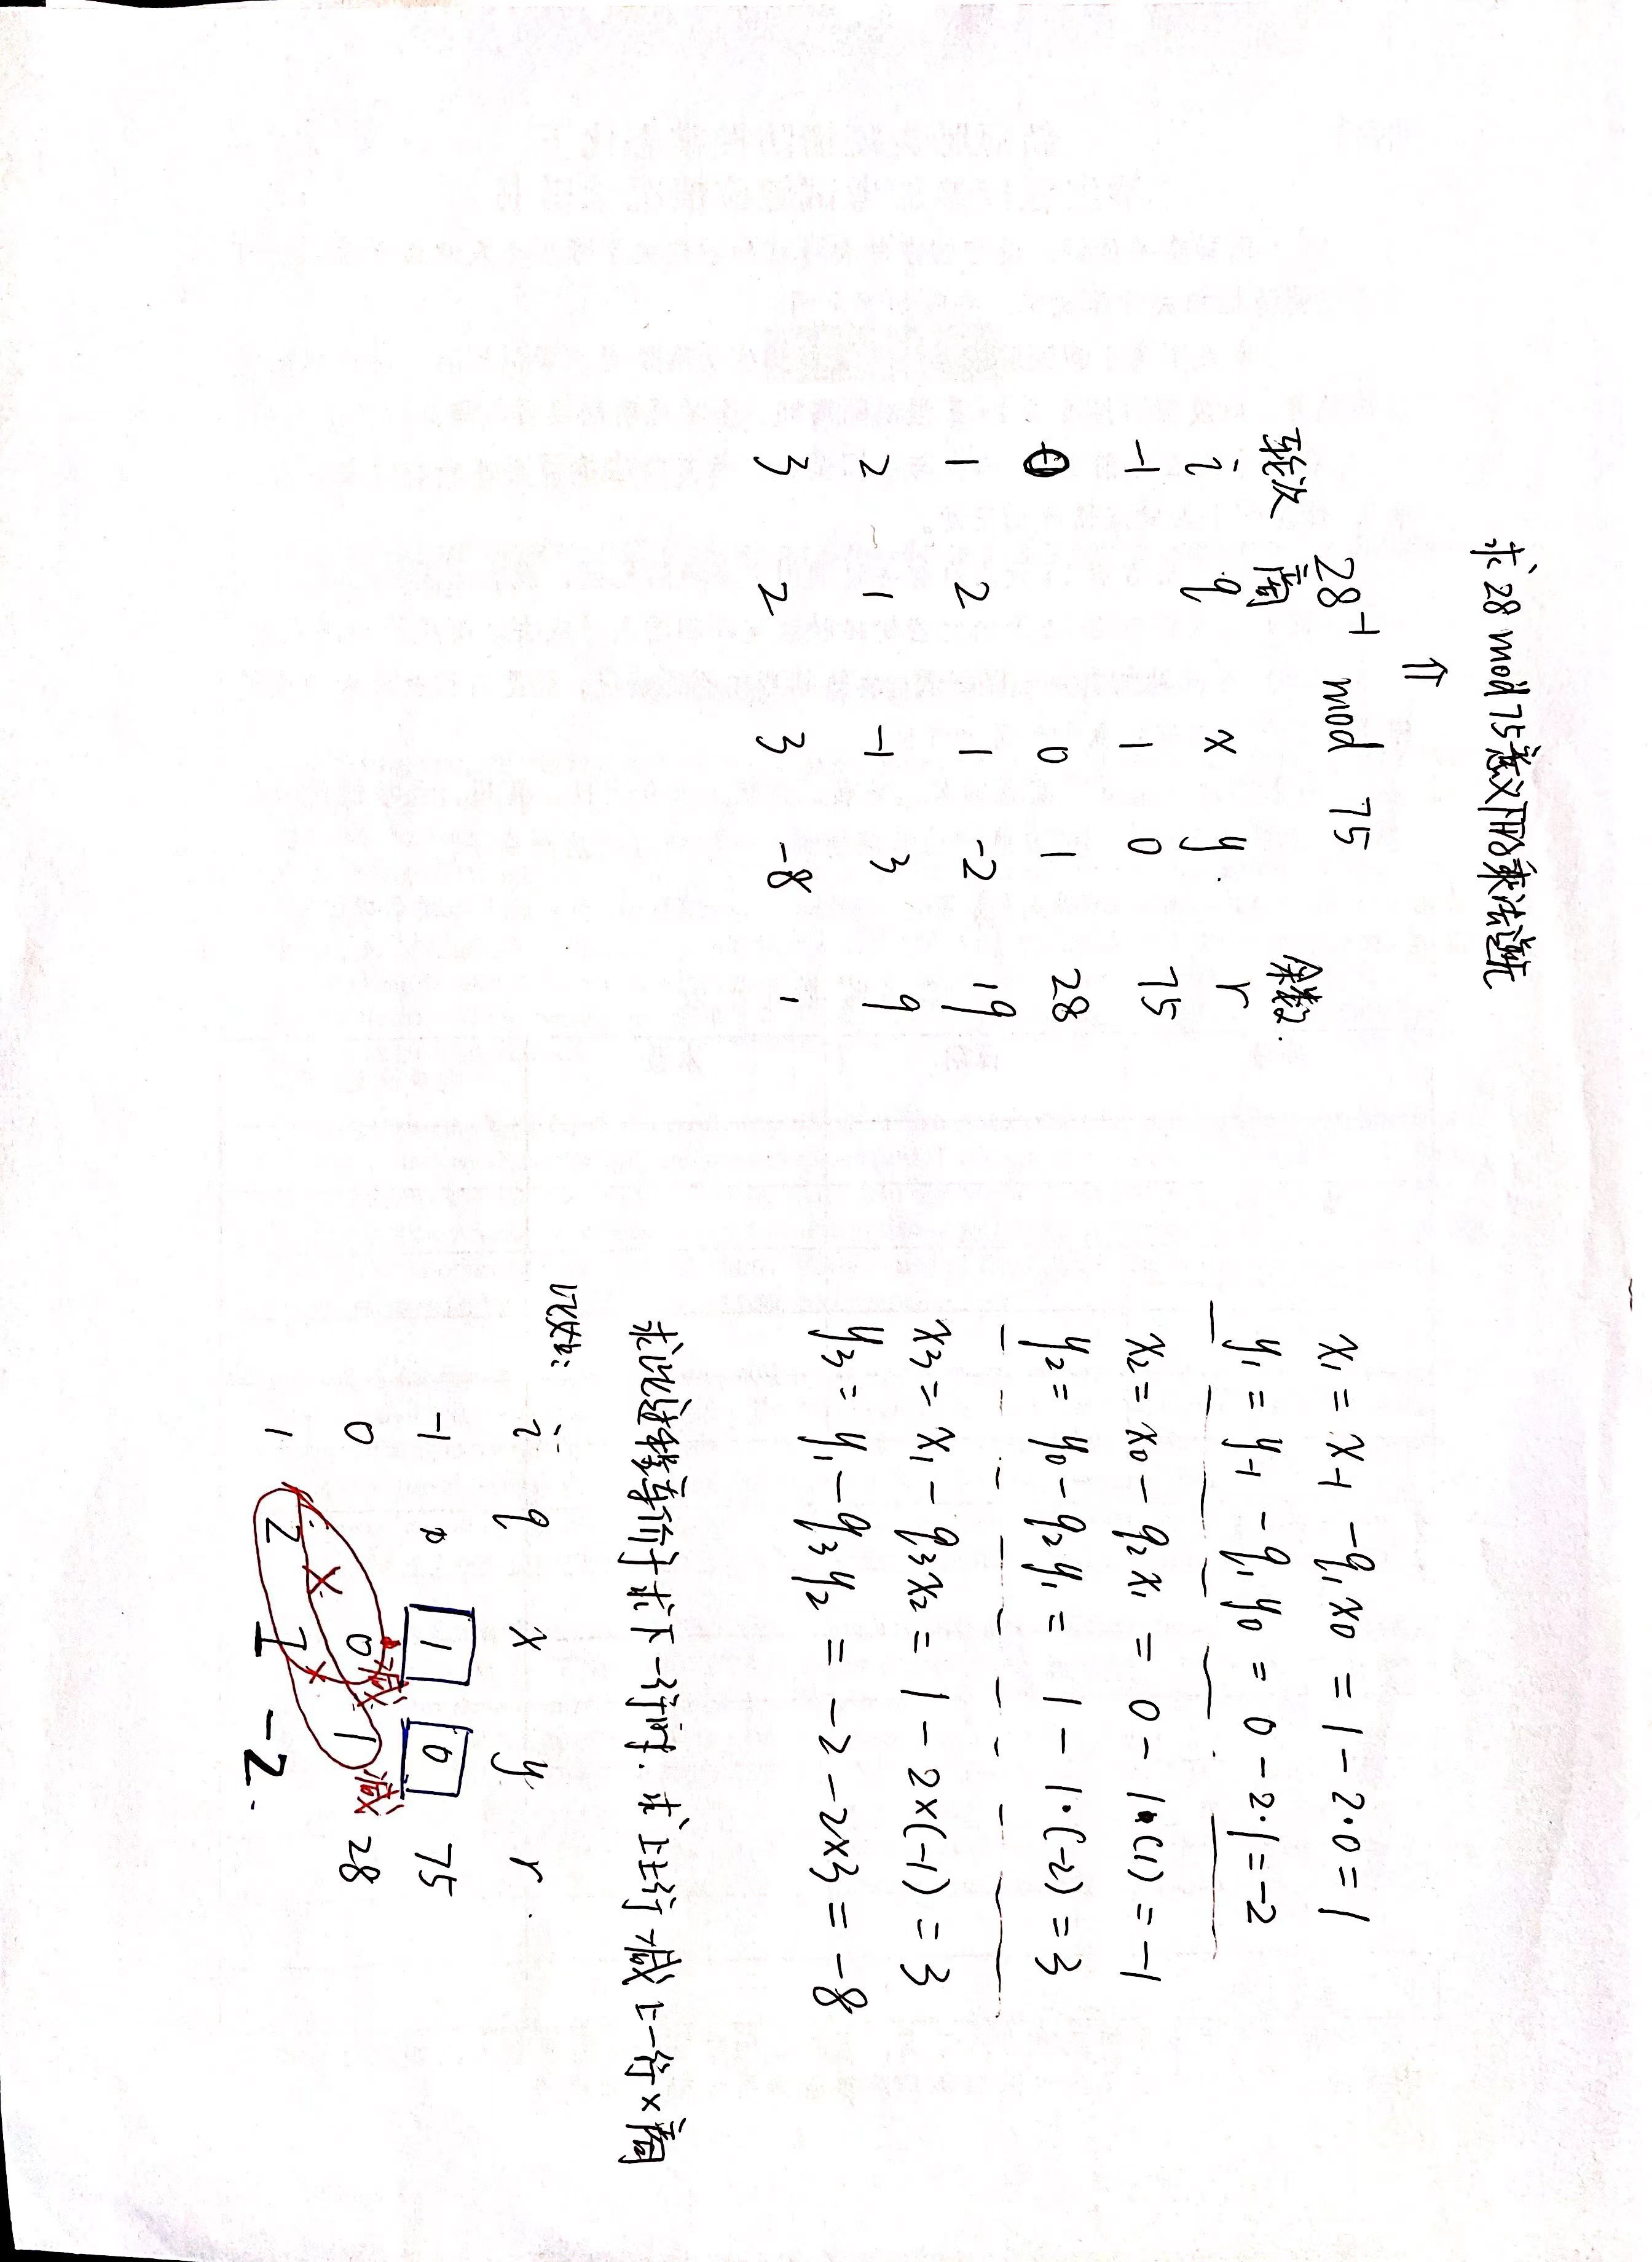 求 28 mod 75意义下的乘法逆元
⇑
28⁻¹ mod 75
轮次 商 余数.
i q x y r
-1 1 0 75
0 0 1 28
1 2 1 -2 19
2 1 -1 3 9
3 2 3 -8 1
x₁ = x₋₁ - q₁x₀ = 1 - 2·0 = 1
y₁ = y₋₁ - q₁y₀ = 0 - 2·1 = -2
x₂ = x₀ - q₂x₁ = 0 - 1·(1) = -1
y₂ = y₀ - q₂y₁ = 1 - 1·(-2) = 3
x₃ = x₁ - q₃x₂ = 1 - 2×(-1) = 3
y₃ = y₁ - q₃y₂ = -2 - 2×3 = -8
求 下一行时. 求 上上行 减 上一行×商
记法:
i q x y r
-1 1 0 75
0 0 减 1 减 28
1 2 × 1 × -2.